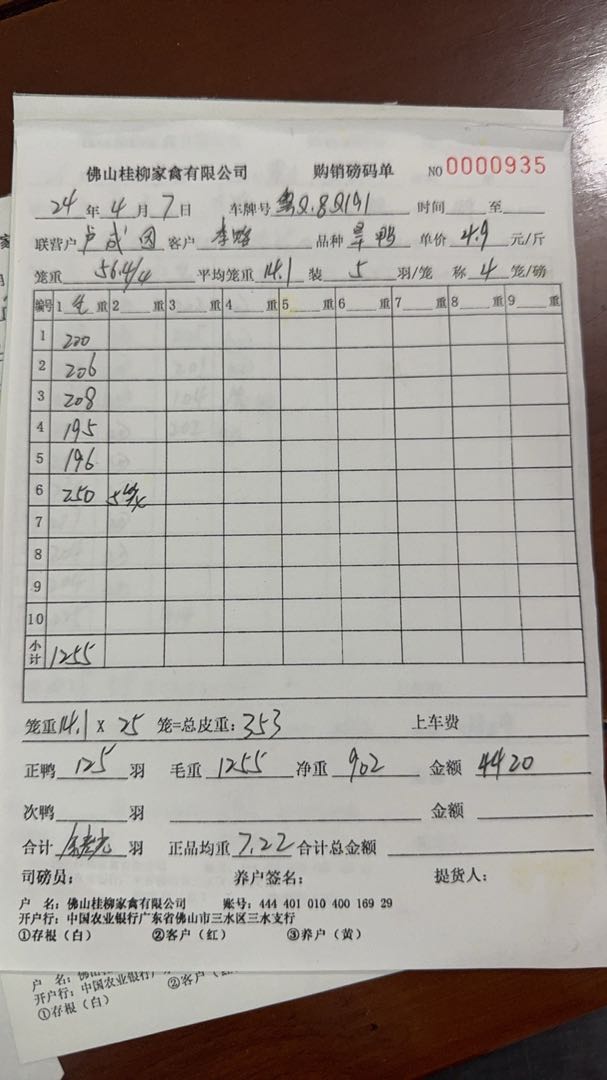 佛山桂柳家禽有限公司 购销磅码单 NO 0000935
24 年 4 月 7 日 车牌号 时间 至
联营户 卢成因 客户 李 品种 旱鸭 单价 4.9 元/斤
笼重 56.4/4 平均笼重 14.1 装 5 羽/笼 称 4 笼/磅
编号 1 毛 重 2 重 3 重 4 重 5 重 6 重 7 重 8 重 9 重
1 200
2 206
3 208
4 195
5 196
6 250 5笼
7
8
9
10
小计 1255
笼重 14.1 X 25 笼=总皮重: 353 上车费
正鸭 125 羽 毛重 1255 净重 902 金额 4420
次鸭 羽 金额
合计 羽 正品均重 7.22 合计总金额
司磅员: 养户签名: 提货人:
户 名: 佛山桂柳家禽有限公司 账号: 444 401 010 400 169 29
开户行: 中国农业银行广东省佛山市三水区三水支行
①存根（白） ②客户（红） ③养户（黄）
户 名: 佛山
开户行: 中国农业银行 ②客户
①存根（白）